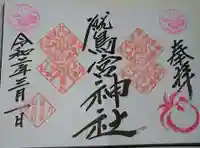 奉拝
鷲宮神社
令和二年三月一日